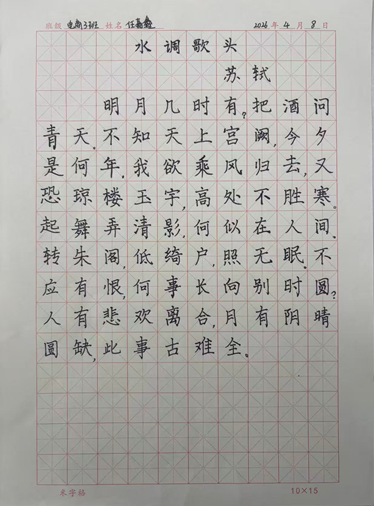 班级 电商3班 姓名 任 2026 年 4 月 8 日
水调歌头
苏轼
明月几时有?把酒问
青天。不知天上宫阙,今夕
是何年。我欲乘风归去,又
恐琼楼玉宇,高处不胜寒。
起舞弄清影,何似在人间。
转朱阁,低绮户,照无眠。不
应有恨,何事长向别时圆?
人有悲欢离合,月有阴晴
圆缺,此事古难全。
米字格 10×15